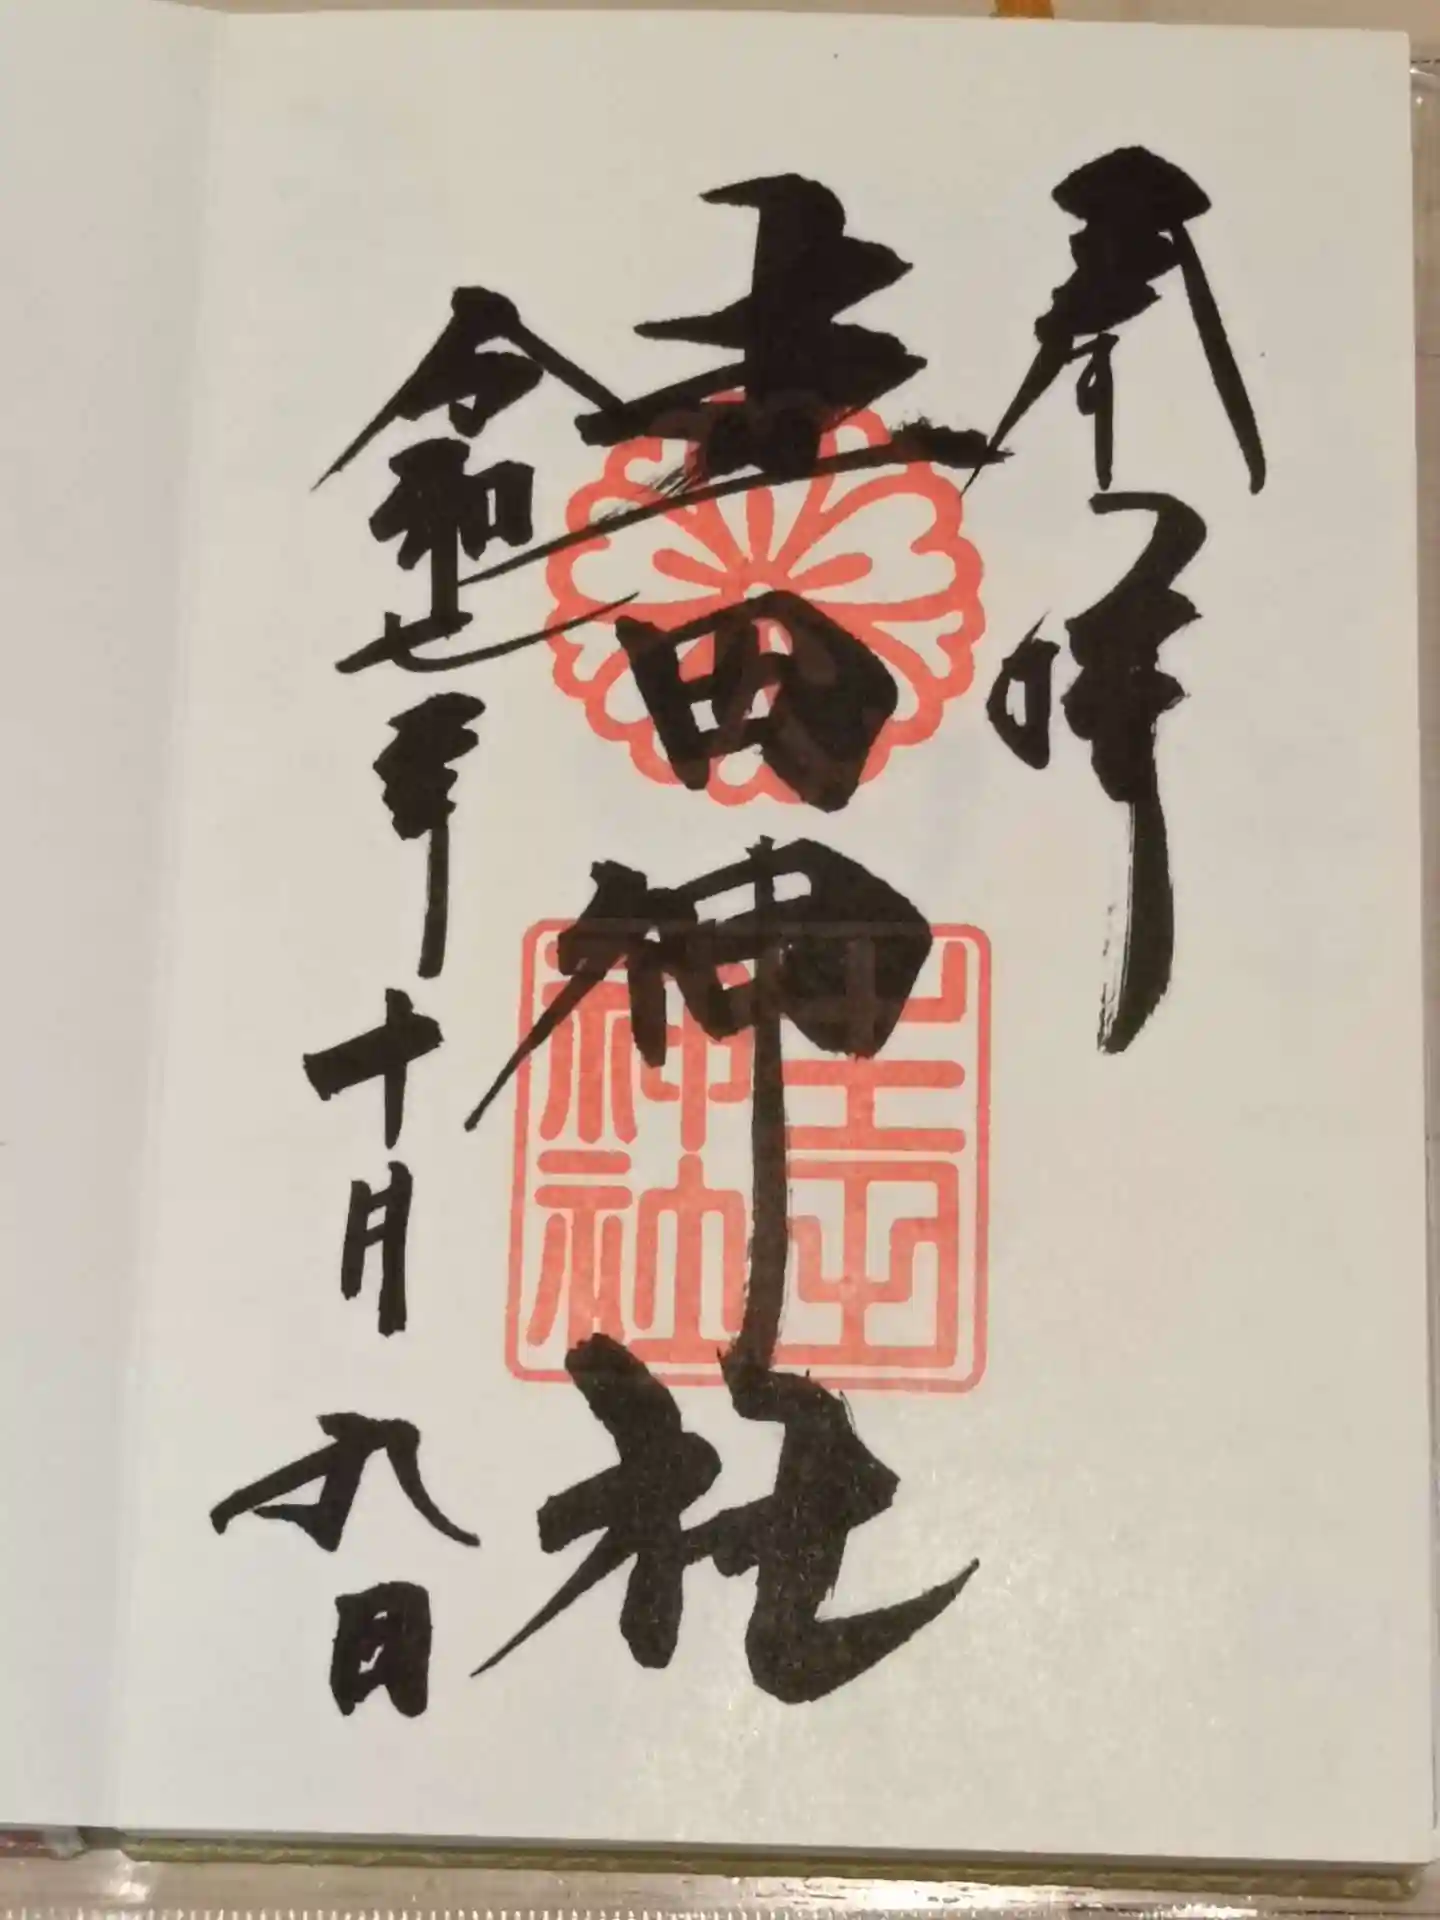 奉拝
生田神社
令和七年十月九日
生田
神社